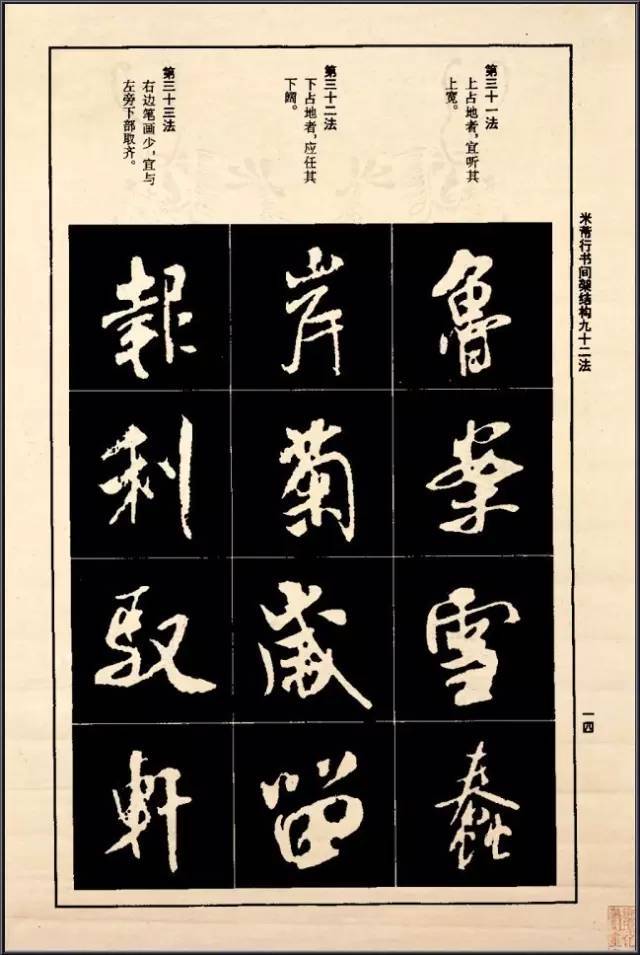 米芾行书间架结构九十二法
一四
第三十一法
上占地者，宜听其
上宽。
第三十二法
下占地者，应任其
下阔。
第三十三法
右边笔画少，宜与
左旁下部取齐。
魯
雪
蠢
岸
菊
歲
留
報
利
馭
軒